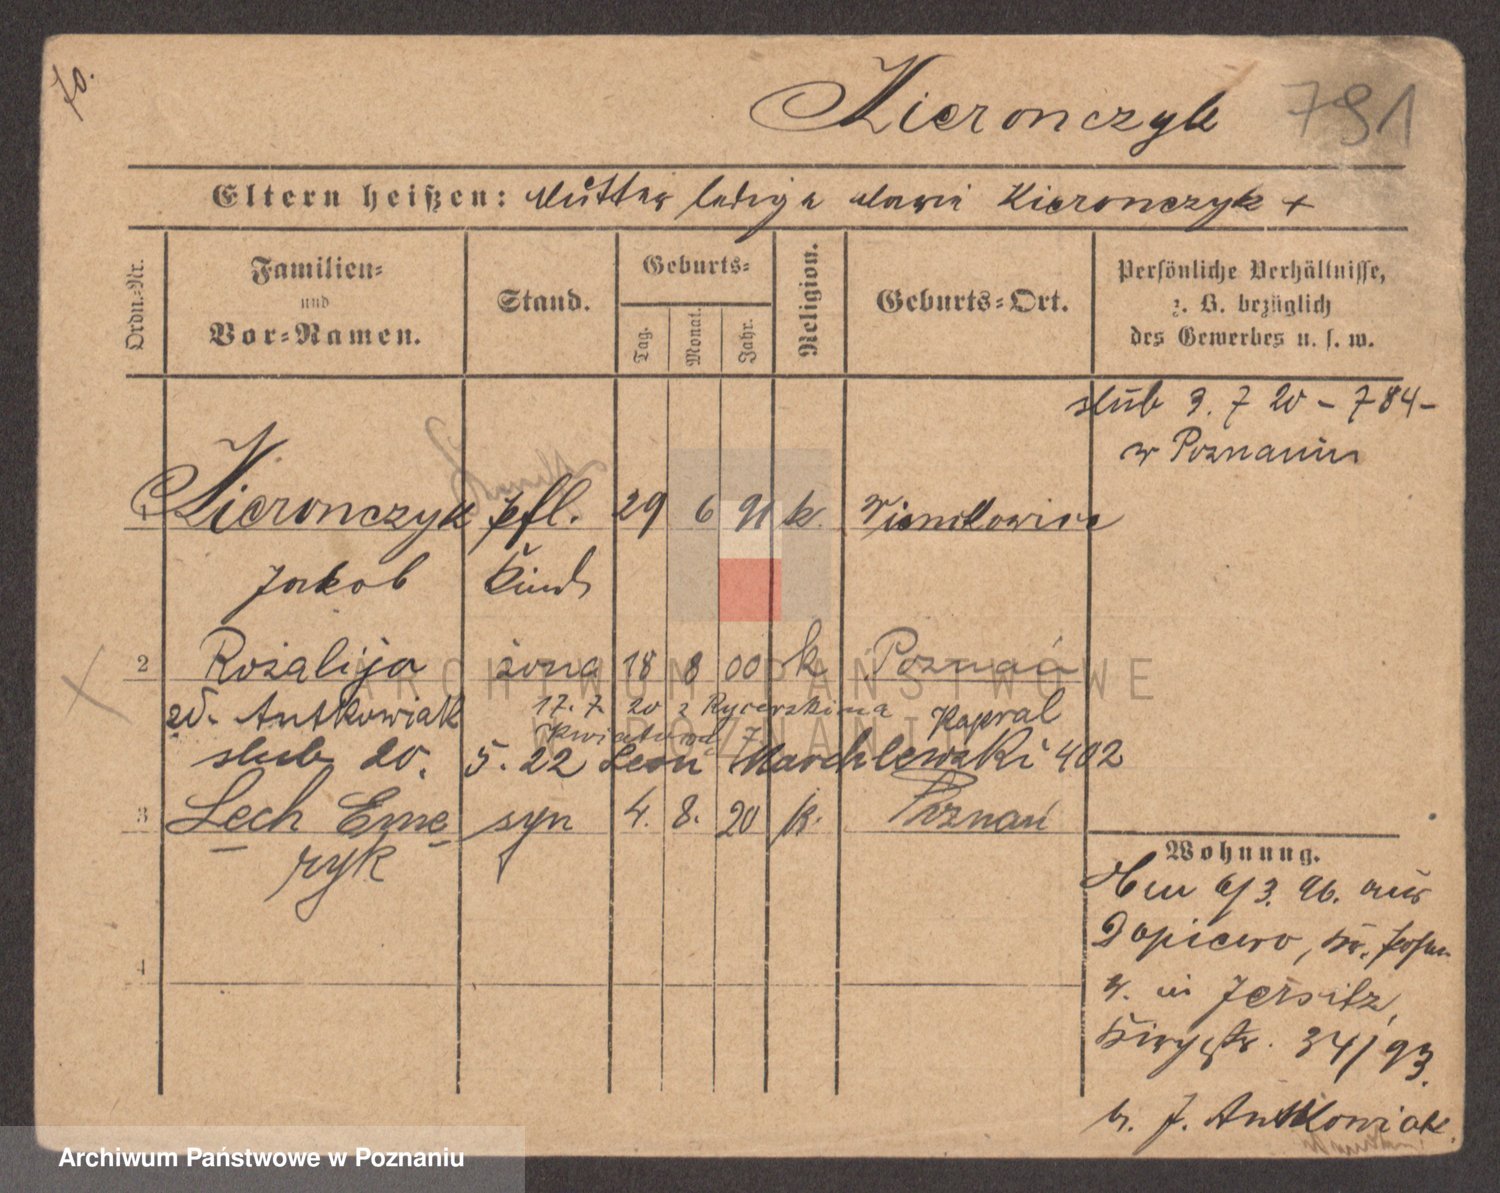 70.
Kieronczyk 791
Eltern heißen: Mutter ledige Marie Kieronczyk +
Ordn.-Nr.
Familien-
und
Vor-Namen.
Stand.
Geburts-
Tag.
Monat.
Jahr.
Religion.
Geburts-Ort.
Persönliche Verhältnisse,
z. B. bezüglich
des Gewerbes u. s. w.
slub 3. 7 20 - 784 -
w Poznaniu
1 Kieronczyk pfl. 29 6 91 k.
Jakob Kind
2 Rozalija żona 18 8 00 k Poznań
zd. Antkowiak 17. 7 20 z Rycerskiema Kapral
Kwiatowa 7
slub 20. 5. 22 Leon Marchlewski 402
3 Lech Eme syn 4. 8. 20 k. Poznań
ryk
4
Wohnung.
6/3. 96. aus
Dopiewo, Kr. Posen
w. in Jersitz,
34/93.
b. J. Antkowiak
ARCHIWUM PAŃSTWOWE
W POZNANIU
Archiwum Państwowe w Poznaniu